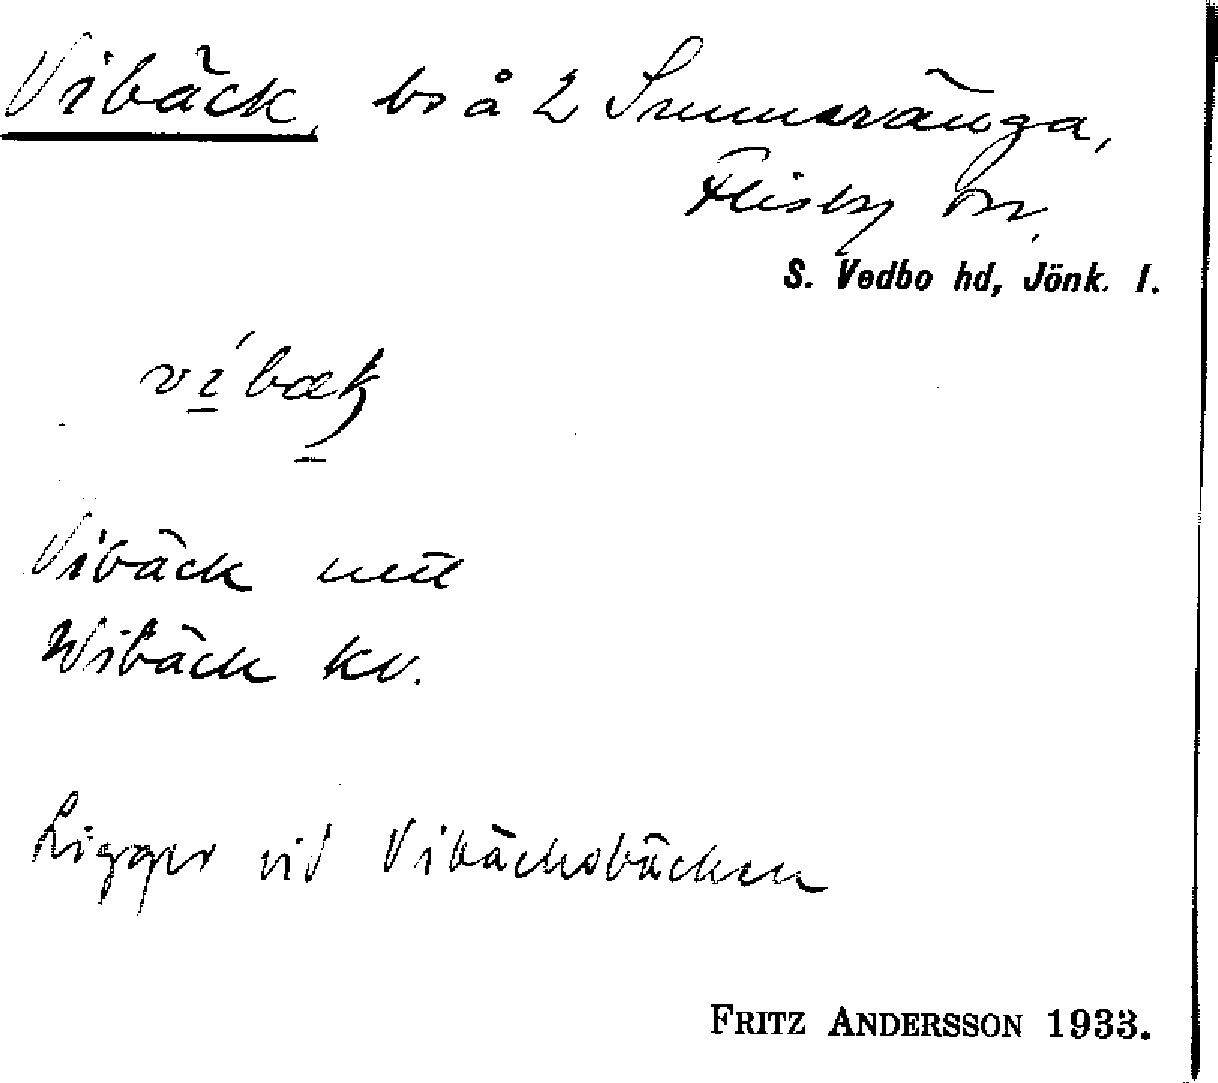 Vibäck, bs å 2 Sunnaränga,
Flisby sn.
S. Vedbo hd, Jönk. l.
víbæk
Vibäck
Wibäck kv.
Ligger vid Vibäcksbäcken
FRITZ ANDERSSON 1933.